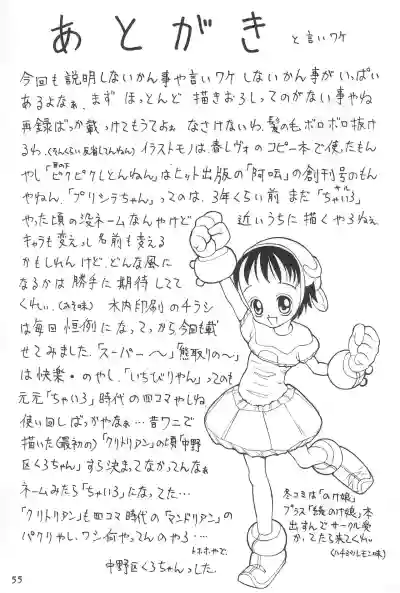 あとがき と言いワケ
今回も説明しないかん事や言いワケしないかん事がいっぱい
あるよなぁ。まずほっとんど描きおろしってのがない事やね
再録ばっか載っけてもうてぉぉなさけないわ、髪の毛ボロボロ抜け
るわ、(そんくらい反省してんねん)イラストモノは、春レヴォのコピー本で使ったもん
やし「茎の下ピクピクしとんねん」はヒット出版の「阿吽」の創刊号のもん
やねん。「プリシラちゃん」ってのは、3年くらい前まだ「ちゃいるろ」
やった頃の没ネームなんやけど近いうちに描くやろねぇ
キャラも変えっし名前も変える
かもしれんけど、どんな風に
なるかは勝手に期待してて
くれぃ。(あそ味)木内印刷のチラシ
は毎回恒例になってっから今回も載
せてみました。「スーパー〜」「熊取りの〜」
は快楽・のやし、「いちびりやん」っても
元元「ちゃいろ」時代の四コマやしね
使い回しばっかやなぁ…昔ワニで
描いた(最初の)「クリトリアン」の頃「中野
区くろちゃん」すら決まってなかってんなぁ
ネームみたら「ちゃいろ」になってた…
「クリトリアン」も四コマ時代の「マンドリアン」の
パクリやし、ワシ何やってんのやろ…
トホホやで、
中野区くろちゃんっした。
冬コミは「のけ娘」
プラス「続のけ娘」本
出すんでサークル受
かってたら来てくれぃ。
(ハチミツレモン味)
55